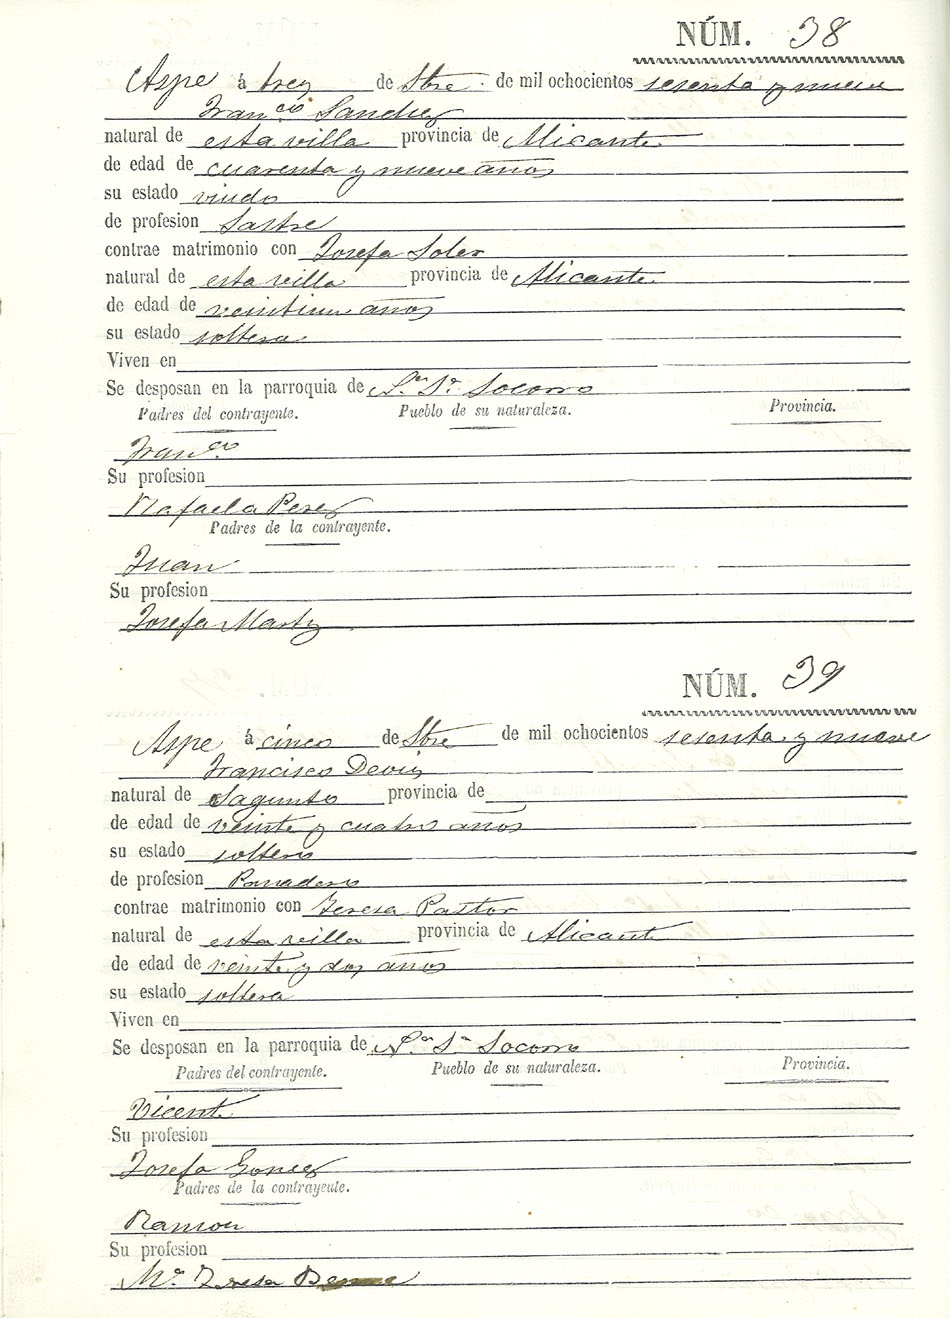 NÚM. 38
Aspe á tres de Stbre. de mil ochocientos sesenta y nueve
Franco Sanchez
natural de esta villa provincia de Alicante
de edad de cuarenta y nueve años
su estado viudo
de profesion Sastre
contrae matrimonio con Josefa Soler
natural de esta villa provincia de Alicante
de edad de veintiun años
su estado soltera
Viven en
Se desposan en la parroquia de Socorro
Padres del contrayente. Pueblo de su naturaleza. Provincia.
Franco
Su profesion
Rafaela Perez
Padres de la contrayente.
Juan
Su profesion
Josefa Martz
NÚM. 39
Aspe á cinco de Stbre de mil ochocientos sesenta y nueve
Francisco Devis
natural de Sagunto provincia de
de edad de veinte y cuatro años
su estado soltero
de profesion Panadero
contrae matrimonio con Teresa Pastor
natural de esta villa provincia de Alicante
de edad de veinte y dos años
su estado soltera
Viven en
Se desposan en la parroquia de Socorro
Padres del contrayente. Pueblo de su naturaleza. Provincia.
Vicente
Su profesion
Josefa Gomez
Padres de la contrayente.
Ramon
Su profesion
Ma. Teresa